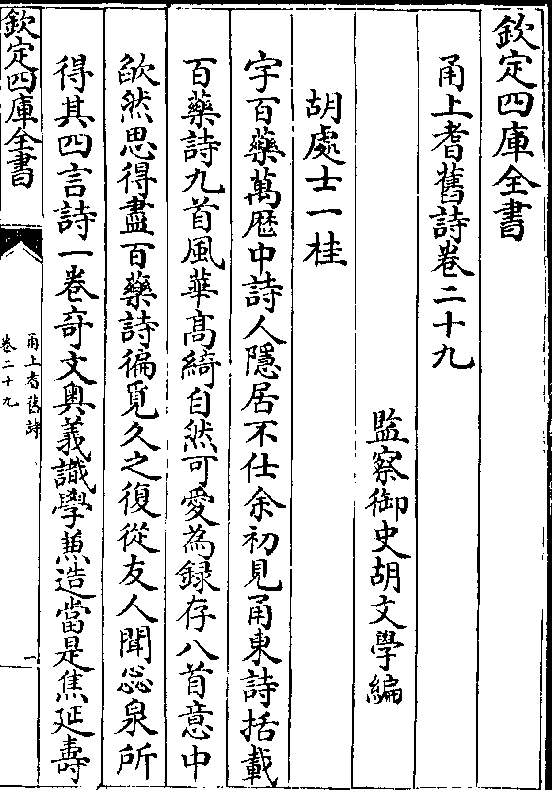 欽定四庫全書
甬上耆舊詩卷二十九
監察御史胡文學編
胡處士一桂
字百藥萬厯中詩人隱居不仕余初見甬東詩括載
百藥詩九首風華髙綺自然可愛為録存八首意中
欿然思得盡百藥詩徧覓久之復從友人聞蕊泉所
得其四言詩一卷奇文奥義識學兼造當是焦延壽
欽定四庫全書
甬上耆舊詩
卷二十九
一